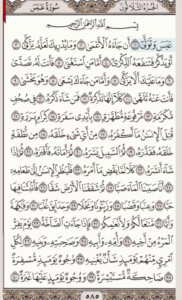 الجزء الثلاثون سورة عبس
بِسْمِ اللَّهِ الرَّحْمَٰنِ الرَّحِيمِ
عَبَسَ وَتَوَلَّىٰ ١ أَن جَاءَهُ الْأَعْمَىٰ ٢ وَمَا يُدْرِيكَ لَعَلَّهُ يَزَّكَّىٰ ٣
أَوْ يَذَّكَّرُ فَتَنفَعَهُ الذِّكْرَىٰ ٤ أَمَّا مَنِ اسْتَغْنَىٰ ٥ فَأَنتَ لَهُ تَصَدَّىٰ ٦
وَمَا عَلَيْكَ أَلَّا يَزَّكَّىٰ ٧ وَأَمَّا مَن جَاءَكَ يَسْعَىٰ ٨ وَهُوَ يَخْشَىٰ ٩
فَأَنتَ عَنْهُ تَلَهَّىٰ ١٠ كَلَّا إِنَّهَا تَذْكِرَةٌ ١١ فَمَن شَاءَ ذَكَرَهُ ١٢ فِي صُحُفٍ
مُّكَرَّمَةٍ ١٣ مَّرْفُوعَةٍ مُّطَهَّرَةٍ ١٤ بِأَيْدِي سَفَرَةٍ ١٥ كِرَامٍ بَرَرَةٍ ١٦
قُتِلَ الْإِنسَانُ مَا أَكْفَرَهُ ١٧ مِنْ أَيِّ شَيْءٍ خَلَقَهُ ١٨ مِن نُّطْفَةٍ
خَلَقَهُ فَقَدَّرَهُ ١٩ ثُمَّ السَّبِيلَ يَسَّرَهُ ٢٠ ثُمَّ أَمَاتَهُ فَأَقْبَرَهُ ٢١ ثُمَّ إِذَا شَاءَ
أَنشَرَهُ ٢٢ كَلَّا لَمَّا يَقْضِ مَا أَمَرَهُ ٢٣ فَلْيَنظُرِ الْإِنسَانُ إِلَىٰ طَعَامِهِ ٢٤
أَنَّا صَبَبْنَا الْمَاءَ صَبًّا ٢٥ ثُمَّ شَقَقْنَا الْأَرْضَ شَقًّا ٢٦ فَأَنبَتْنَا فِيهَا
حَبًّا ٢٧ وَعِنَبًا وَقَضْبًا ٢٨ وَزَيْتُونًا وَنَخْلًا ٢٩ وَحَدَائِقَ غُلْبًا ٣٠ وَفَاكِهَةً
وَأَبًّا ٣١ مَّتَاعًا لَّكُمْ وَلِأَنْعَامِكُمْ ٣٢ فَإِذَا جَاءَتِ الصَّاخَّةُ ٣٣ يَوْمَ يَفِرُّ
الْمَرْءُ مِنْ أَخِيهِ ٣٤ وَأُمِّهِ وَأَبِيهِ ٣٥ وَصَاحِبَتِهِ وَبَنِيهِ ٣٦ لِكُلِّ
امْرِئٍ مِّنْهُمْ يَوْمَئِذٍ شَأْنٌ يُغْنِيهِ ٣٧ وُجُوهٌ يَوْمَئِذٍ مُّسْفِرَةٌ ٣٨
ضَاحِكَةٌ مُّسْتَبْشِرَةٌ ٣٩ وَوُجُوهٌ يَوْمَئِذٍ عَلَيْهَا غَبَرَةٌ ٤٠
٥٨٥